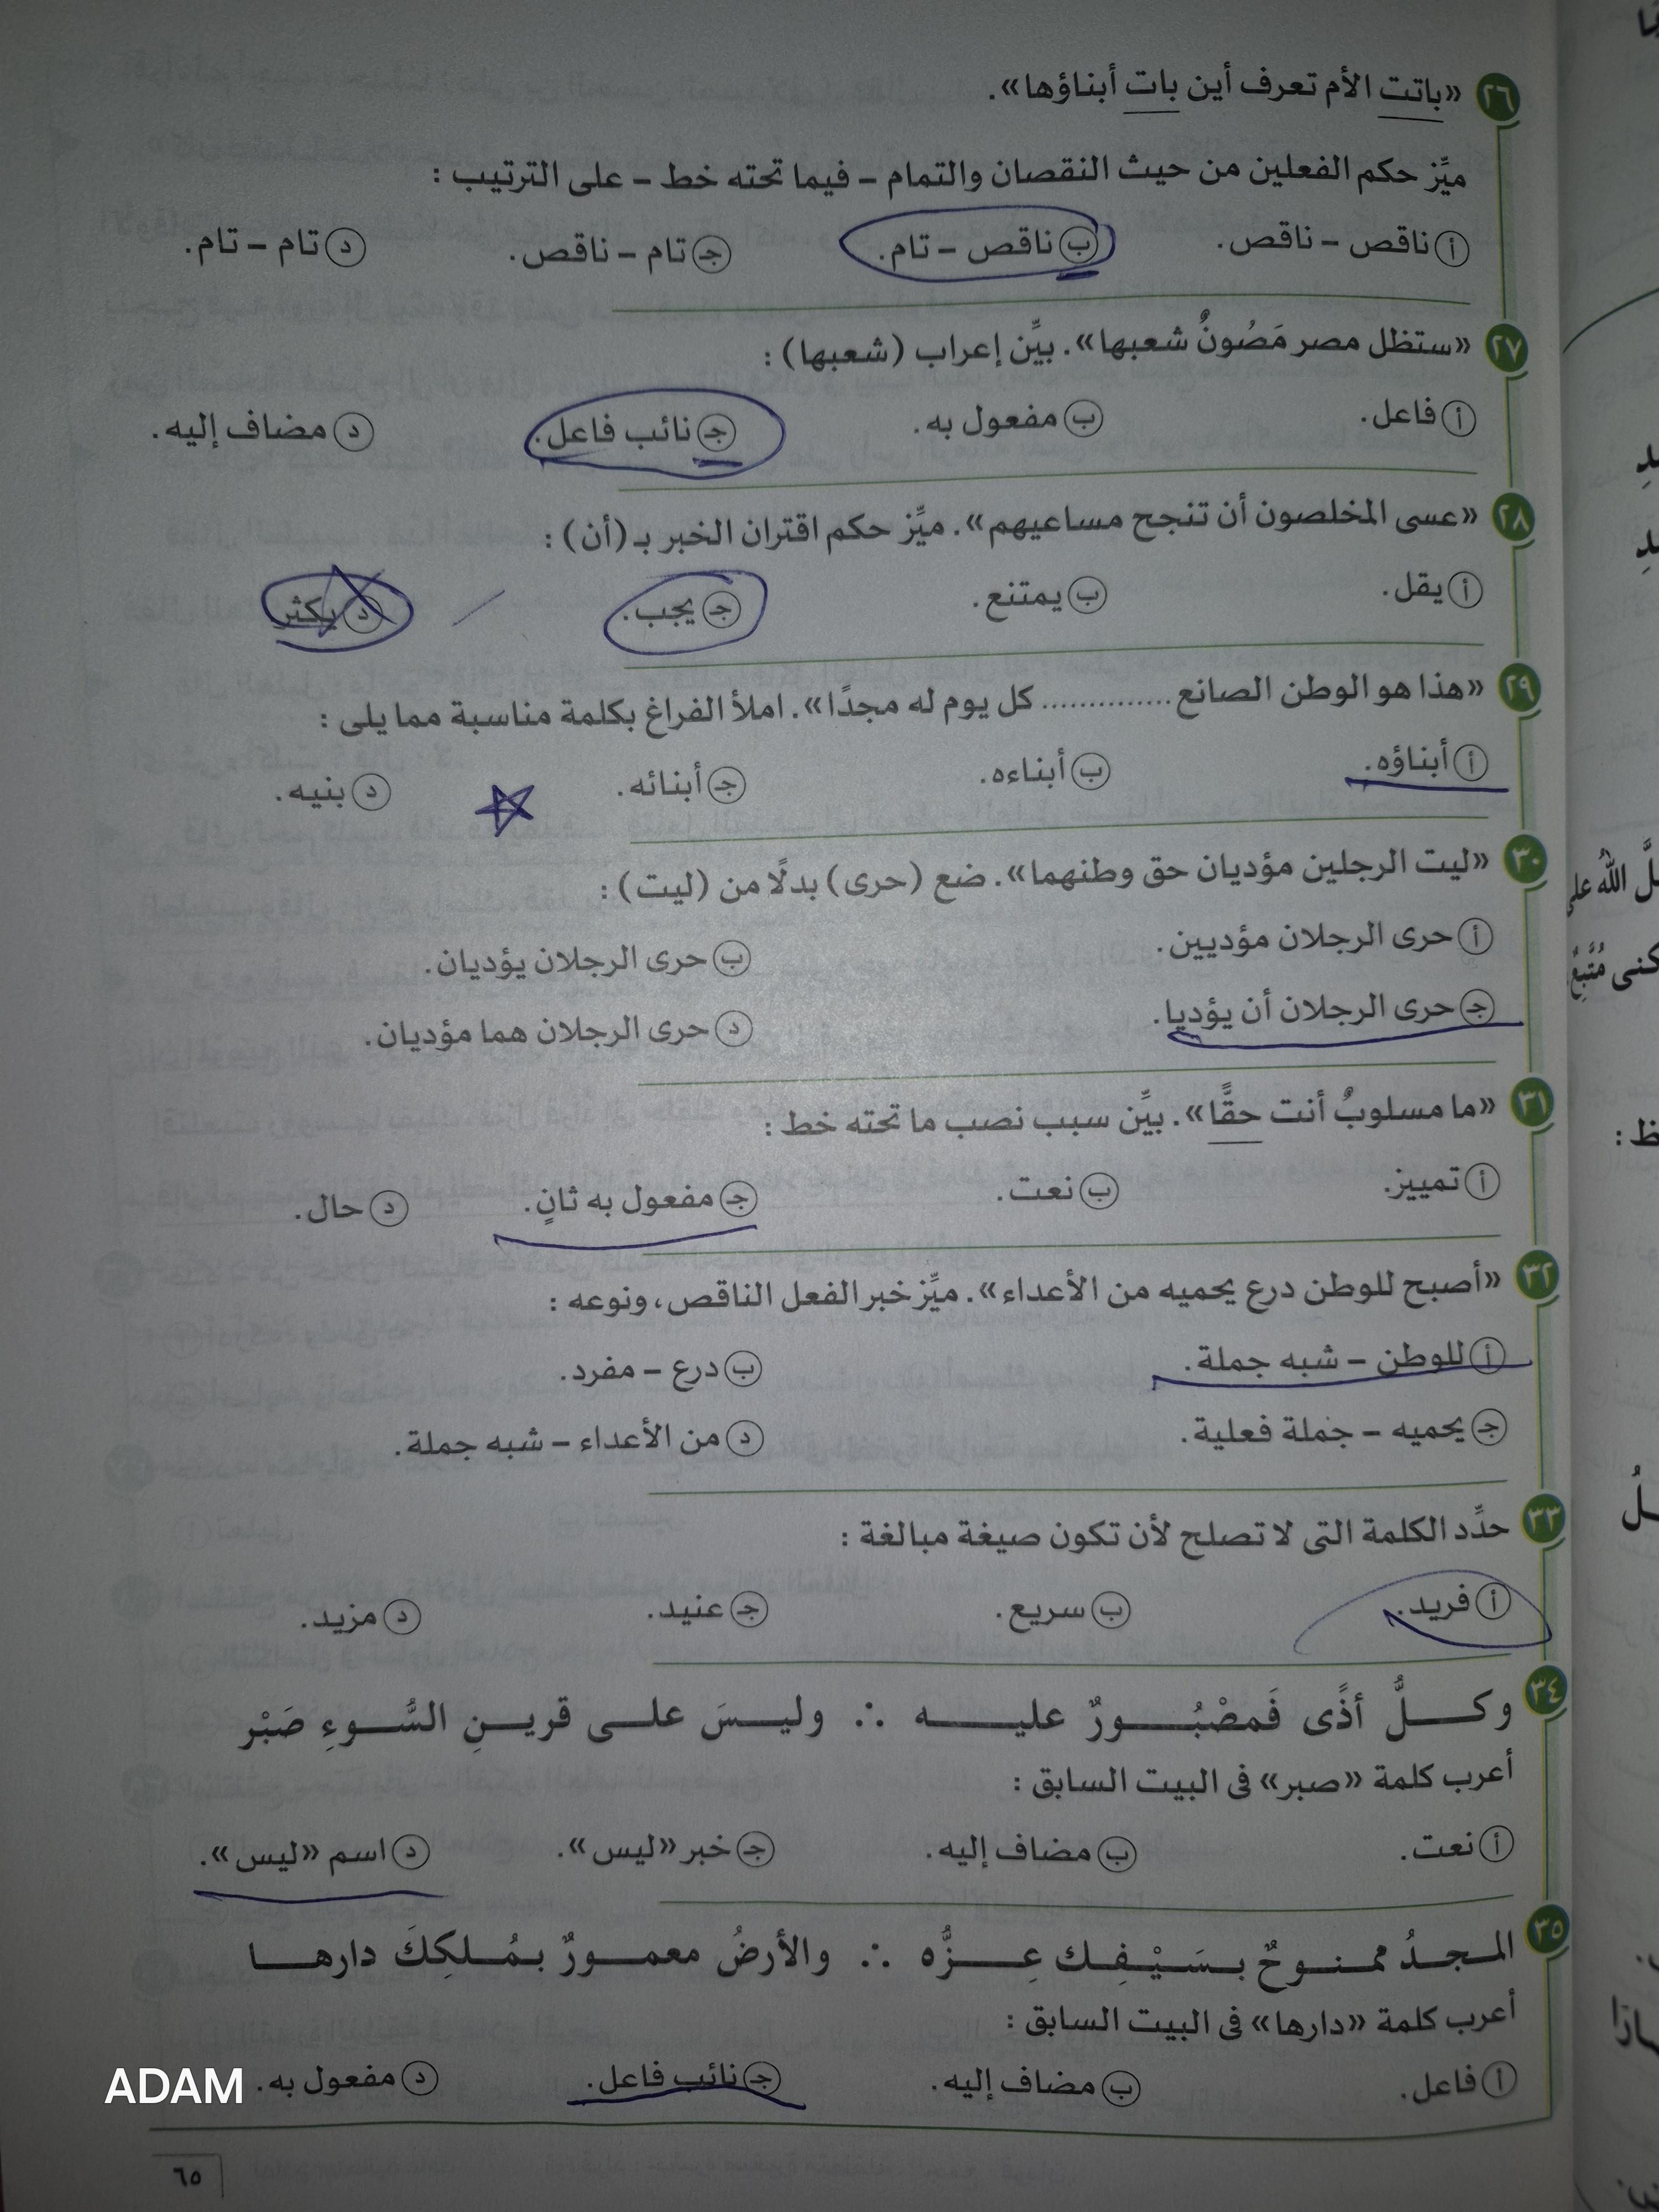 ٢٦ «باتت الأم تعرف أين بات أبناؤها».
ميِّز حكم الفعلين من حيث النقصان والتمام – فيما تحته خط – على الترتيب :
أ ناقص – ناقص. ب ناقص – تام. ج تام – ناقص. د تام – تام.
٢٧ «ستظل مصر مَصُونٌ شعبها». بيِّن إعراب (شعبها) :
أ فاعل. ب مفعول به. ج نائب فاعل. د مضاف إليه.
٢٨ «عسى المخلصون أن تنجح مساعيهم». ميِّز حكم اقتران الخبر بـ (أن) :
أ يقل. ب يمتنع. ج يجب. د يكثر
٢٩ «هذا هو الوطن الصانع .............. كل يوم له مجدًا». املأ الفراغ بكلمة مناسبة مما يلى :
أ أبناؤه. ب أبناءه. ج أبنائه. د بنيه.
٣٠ «ليت الرجلين مؤديان حق وطنهما». ضع (حرى) بدلًا من (ليت) :
أ حرى الرجلان مؤديين. ب حرى الرجلان يؤديان.
ج حرى الرجلان أن يؤديا. د حرى الرجلان هما مؤديان.
٣١ «ما مسلوبٌ أنت حقًّا». بيِّن سبب نصب ما تحته خط :
أ تمييز. ب نعت. ج مفعول به ثانٍ. د حال.
٣٢ «أصبح للوطن درع يحميه من الأعداء». ميِّز خبر الفعل الناقص، ونوعه :
أ للوطن – شبه جملة. ب درع – مفرد.
ج يحميه – جملة فعلية. د من الأعداء – شبه جملة.
٣٣ حدِّد الكلمة التى لا تصلح لأن تكون صيغة مبالغة :
أ فريد. ب سريع. ج عنيد. د مزيد.
٣٤ وكلُّ أذًى فَمصْبُورٌ عليه ∴ وليسَ على قرينِ السُّوءِ صَبْر
أعرب كلمة «صبر» فى البيت السابق :
أ نعت. ب مضاف إليه. ج خبر «ليس». د اسم «ليس».
٣٥ المجدُ ممنوحٌ بسَيْفِك عِزُّه ∴ والأرضُ معمورٌ بمُلكِكَ دارها
أعرب كلمة «دارها» فى البيت السابق :
أ فاعل. ب مضاف إليه. ج نائب فاعل. د مفعول به.
ADAM
٦٥